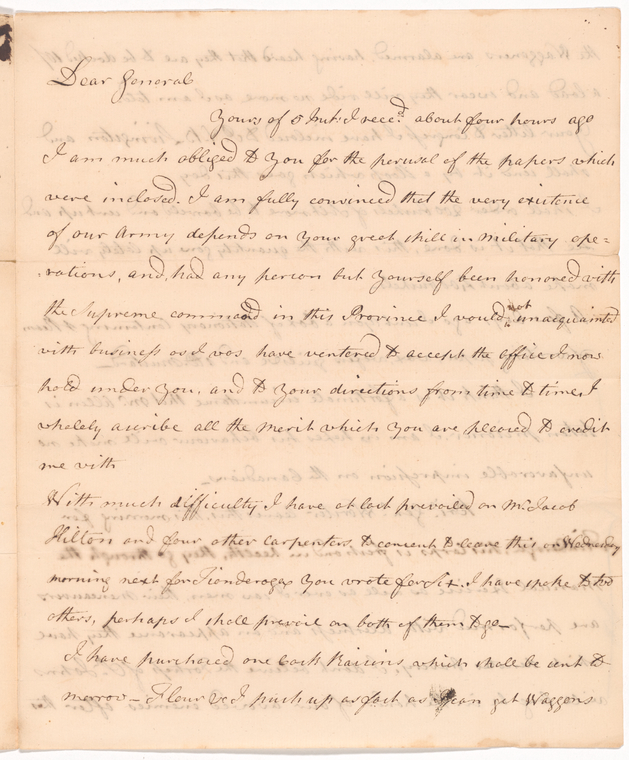 Dear General
Yours of 5 Inst. I recd. about four hours ago
I am much obliged to you for the perusal of the papers which
were inclosed. I am fully convinced that the very existence
of our Army depends on your great skill in military ope=
rations, and, had any person but yourself been honored with
the Supreme command in this Province I would not unacquainted
with business as I was have ventured to accept the office I now
hold under you, and to your directions from time to time, I
wholely ascribe all the merit which you are pleased to credit
me with
With much difficulty I have at last prevailed on Mr. Jacob
Hilton and four other Carpenters, to consent to leave this on Wednesday
morning next for Tionderoga you wrote for Six. I have spoke to two
others, perhaps I shall prevail on both of them to go—
I have purchased one Cask Raisins which shall be sent to
morrow— Flour &c I push up as fast as I can get Waggons